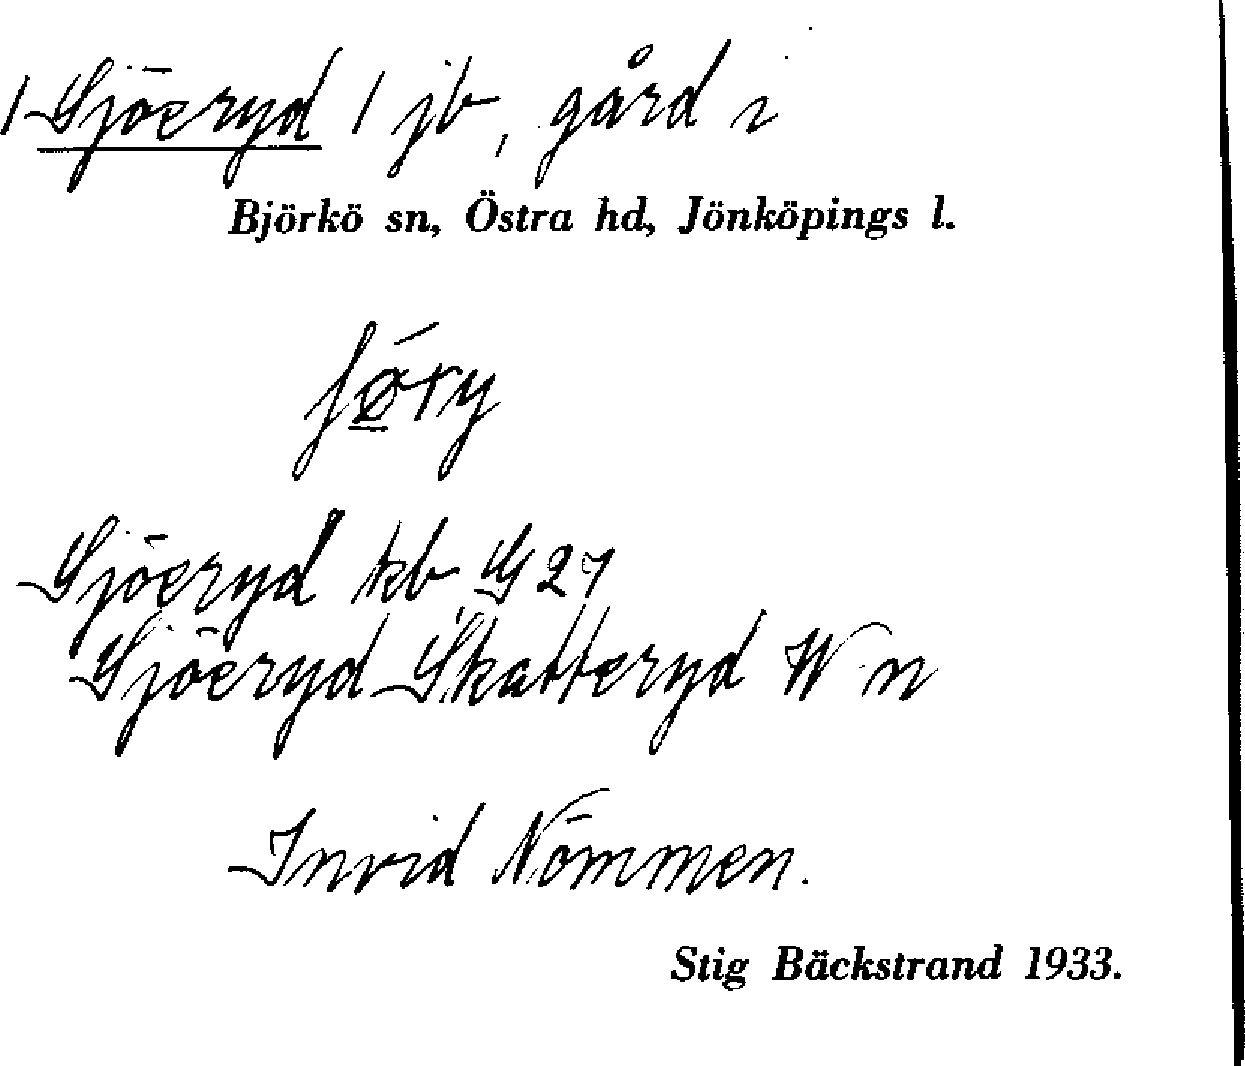 /Sjöeryd/ jb, gård i
Björkö sn, Östra hd, Jönköpings l.
Sjöeryd kb G 27
Sjöeryd Skatteryd W-n
Invid Nömmen.
Stig Bäckstrand 1933.